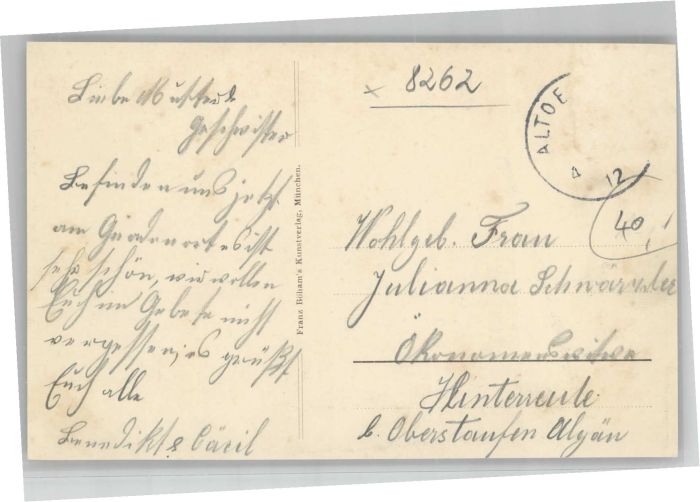 Liebe Mutter &
Geschwister
Befinden uns jetzt
am Gnadenort es ist
sehr schön, wir wollen
Euch im Gebete nicht
vergessen, es grüßt
Euch alle
Benedikt & Cäcil
Franz Böham's Kunstverlag, München.
x 8262
ALTOE
4 12
40,1
Wohlgeb. Frau
Julianna Schwärzler
Ökonomenswitwe
Hinterreute
b. Oberstaufen Algäu